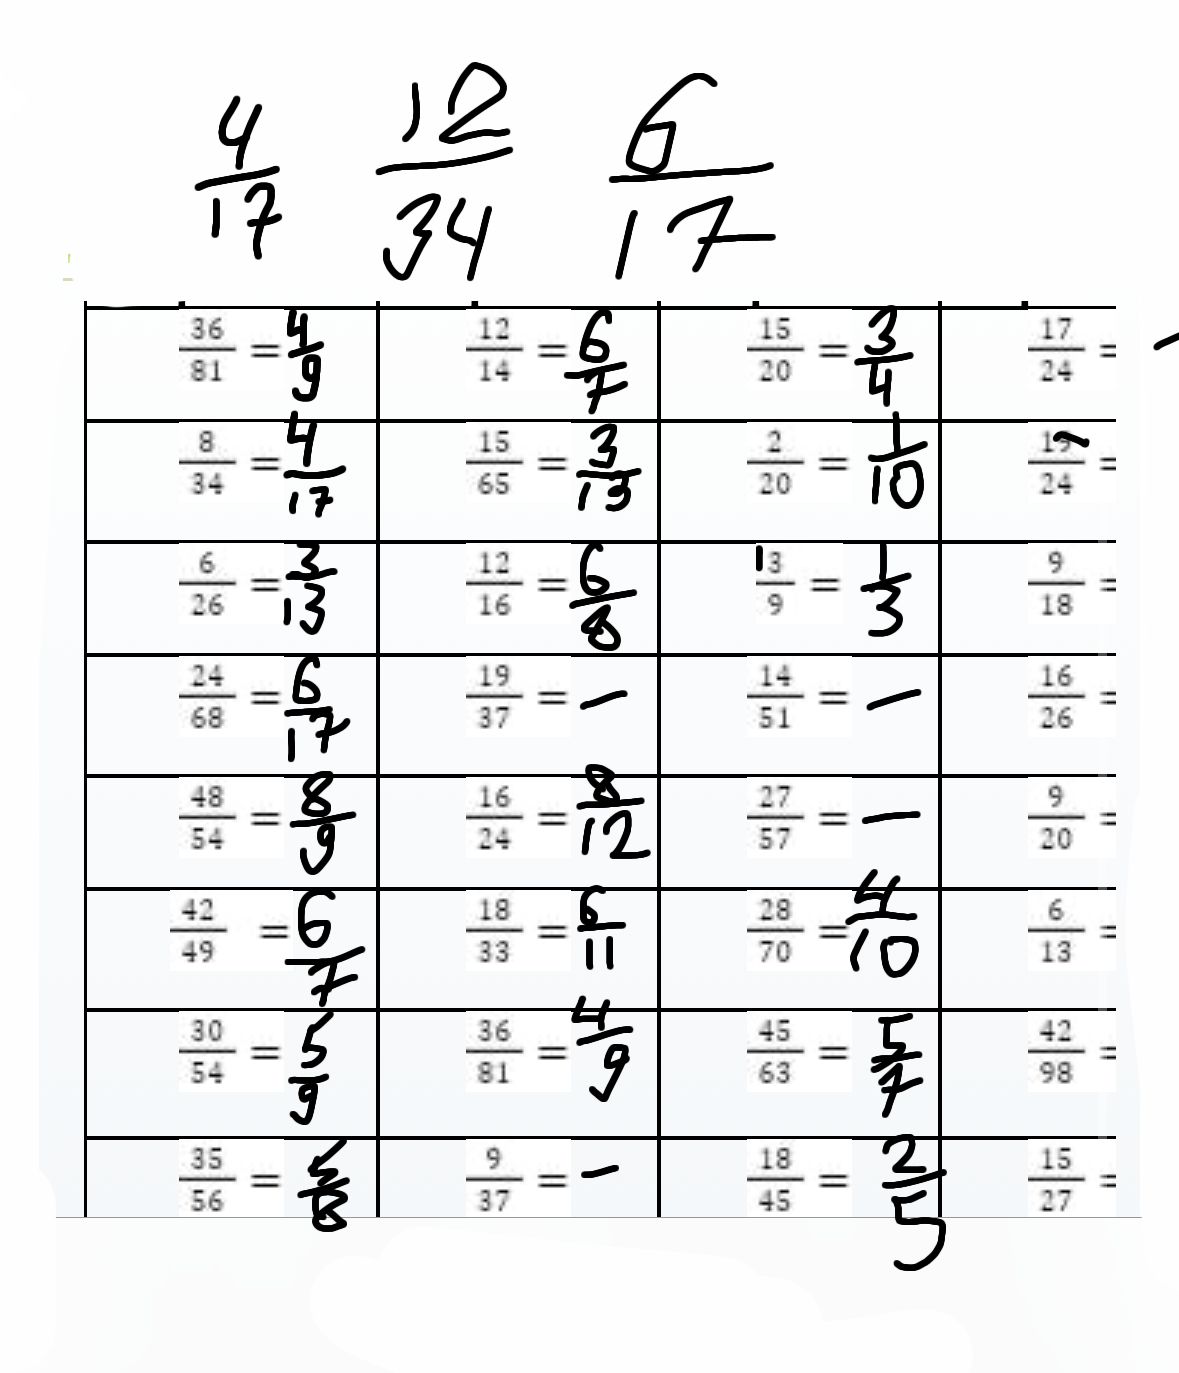 4/17 12/34 6/17
36/81 = 4/9 12/14 = 6/7 15/20 = 3/4 17/24 = -
8/34 = 4/17 15/65 = 3/13 2/20 = 1/10 19/24 =
6/26 = 3/13 12/16 = 6/8 13/9 = 1/3 9/18 =
24/68 = 6/17 19/37 = - 14/51 = - 16/26 =
48/54 = 8/9 16/24 = 8/12 27/57 = - 9/20 =
42/49 = 6/7 18/33 = 6/11 28/70 = 4/10 6/13 =
30/54 = 5/9 36/81 = 4/9 45/63 = 5/7 42/98 =
35/56 = 5/8 9/37 = - 18/45 = 2/5 15/27 =